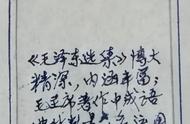 《毛泽东选集》博大
精深，内涵丰富；
毛主席著作中成语